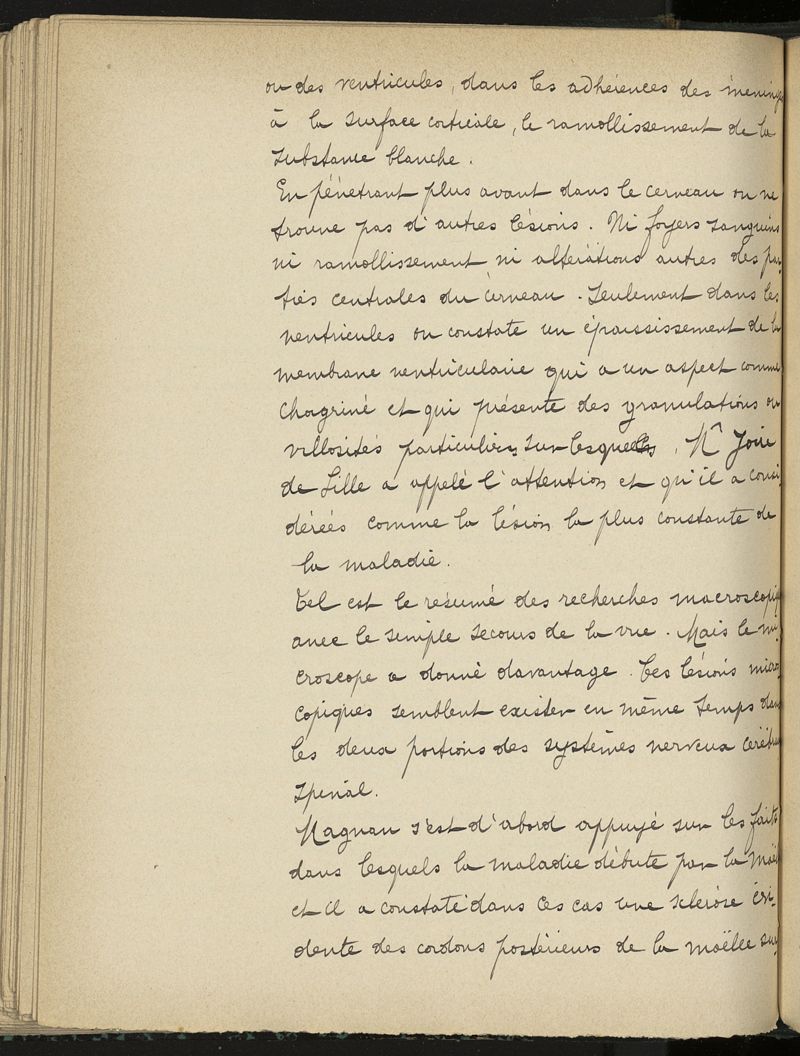 ou des ventricules, dans les adhérences des méninges
à la surface corticale, le ramollissement de la
substance blanche.
En pénétrant plus avant dans le cerveau on ne
trouve pas d'autres lésions. Ni foyers sanguins
ni ramollissement ni altérations autres des par
ties centrales du cerveau. Seulement dans les
ventricules on constate un épaississement de la
membrane ventriculaire qui a un aspect comme
chagriné et qui présente des granulations ou
villosités particulières sur lesquelles, Mr Joire
de Lille a appelé l'attention et qu'il a consi
dérées comme la lésion la plus constante de
la maladie.
Tel est le résumé des recherches macroscopiq
avec le simple secours de la vue. Mais le mi
croscope a donné davantage. Ces lésions micros
copiques semblent exister en même temps dans
les deux portions des systèmes nerveux cérébro
spinal.
Magnan s'est d'abord appuyé sur les faits
dans lesquels la maladie débute par la moëlle
et il a constaté dans ces cas une sclérose évi-
dente des cordons postérieurs de la moëlle sur